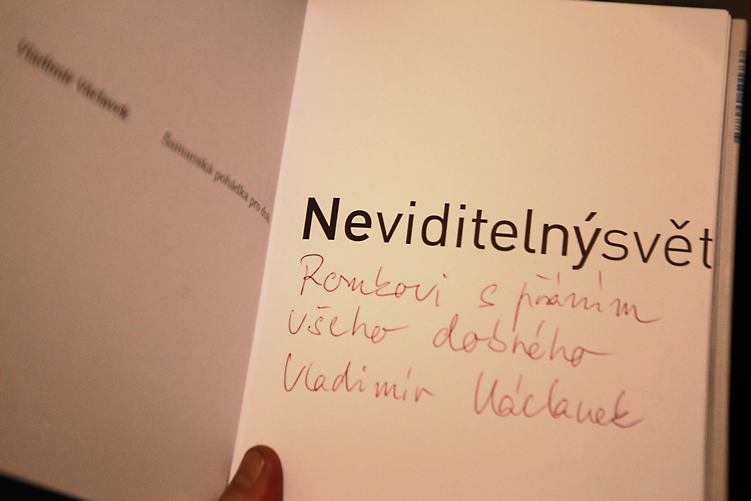 Vladimír Václavek
Šamanská pohádka pro
Neviditelnýsvět
Romkovi s přáním
všeho dobrého
Vladimír Václavek